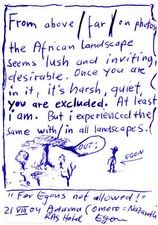 From above / far / on photos
the African landscape
seems lush and inviting,
desirable. Once you are
in it, it's harsh, quiet,
you are excluded. At least
I am. But I experienced the
same with/in all landscapes!
OUT!
EGON
"For Egons not allowed!"
21 VIII 04 Adama (Omoro = Nazareth)
RAS Hotel Egon